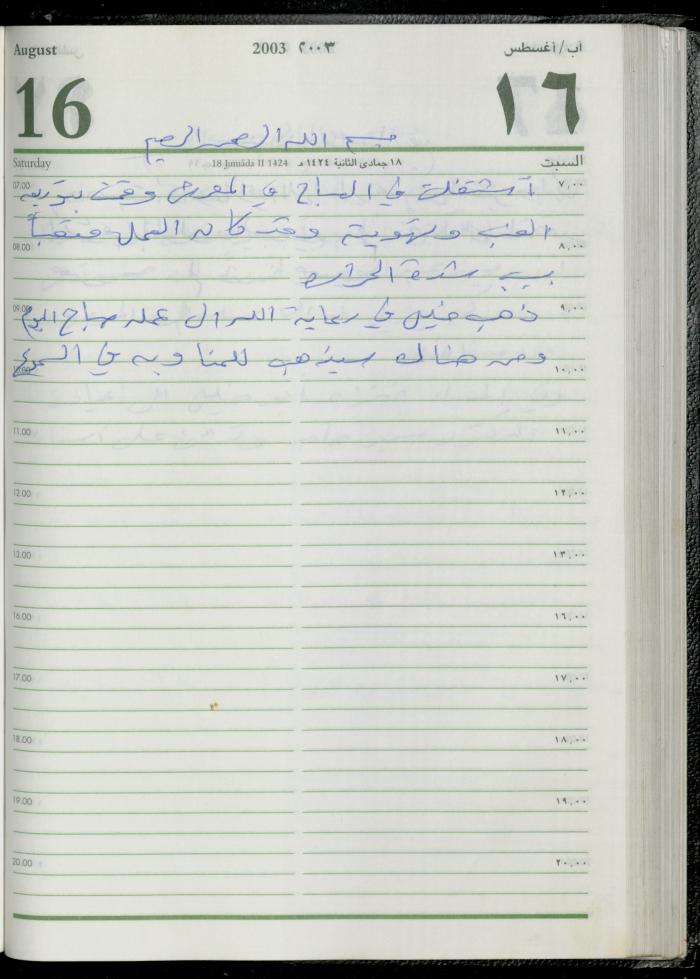 August 2003 ٢٠٠٣ آب/أغسطس
16 ١٦
بسم الله الرحمن الرحيم
Saturday 18 Jumāda II 1424 ١٨ جمادى الثانية ١٤٢٤ هـ السبت
07.00 ٧,٠٠
أشتغلت في الصباح في المعرش وقمت بتوريق
العنب وتهويته وقد كان العمل متعباً
08.00 ٨,٠٠
بسبب شدة الحرارة
09.00 ٩,٠٠
ذهب خليل في رعاية الله الى عمله صباح اليوم
ومن هناك سيذهب للمناوبه في
10.00 ١٠,٠٠
11.00 ١١,٠٠
12.00 ١٢,٠٠
13.00 ١٣,٠٠
16.00 ١٦,٠٠
17.00 ١٧,٠٠
18.00 ١٨,٠٠
19.00 ١٩,٠٠
20.00 ٢٠,٠٠